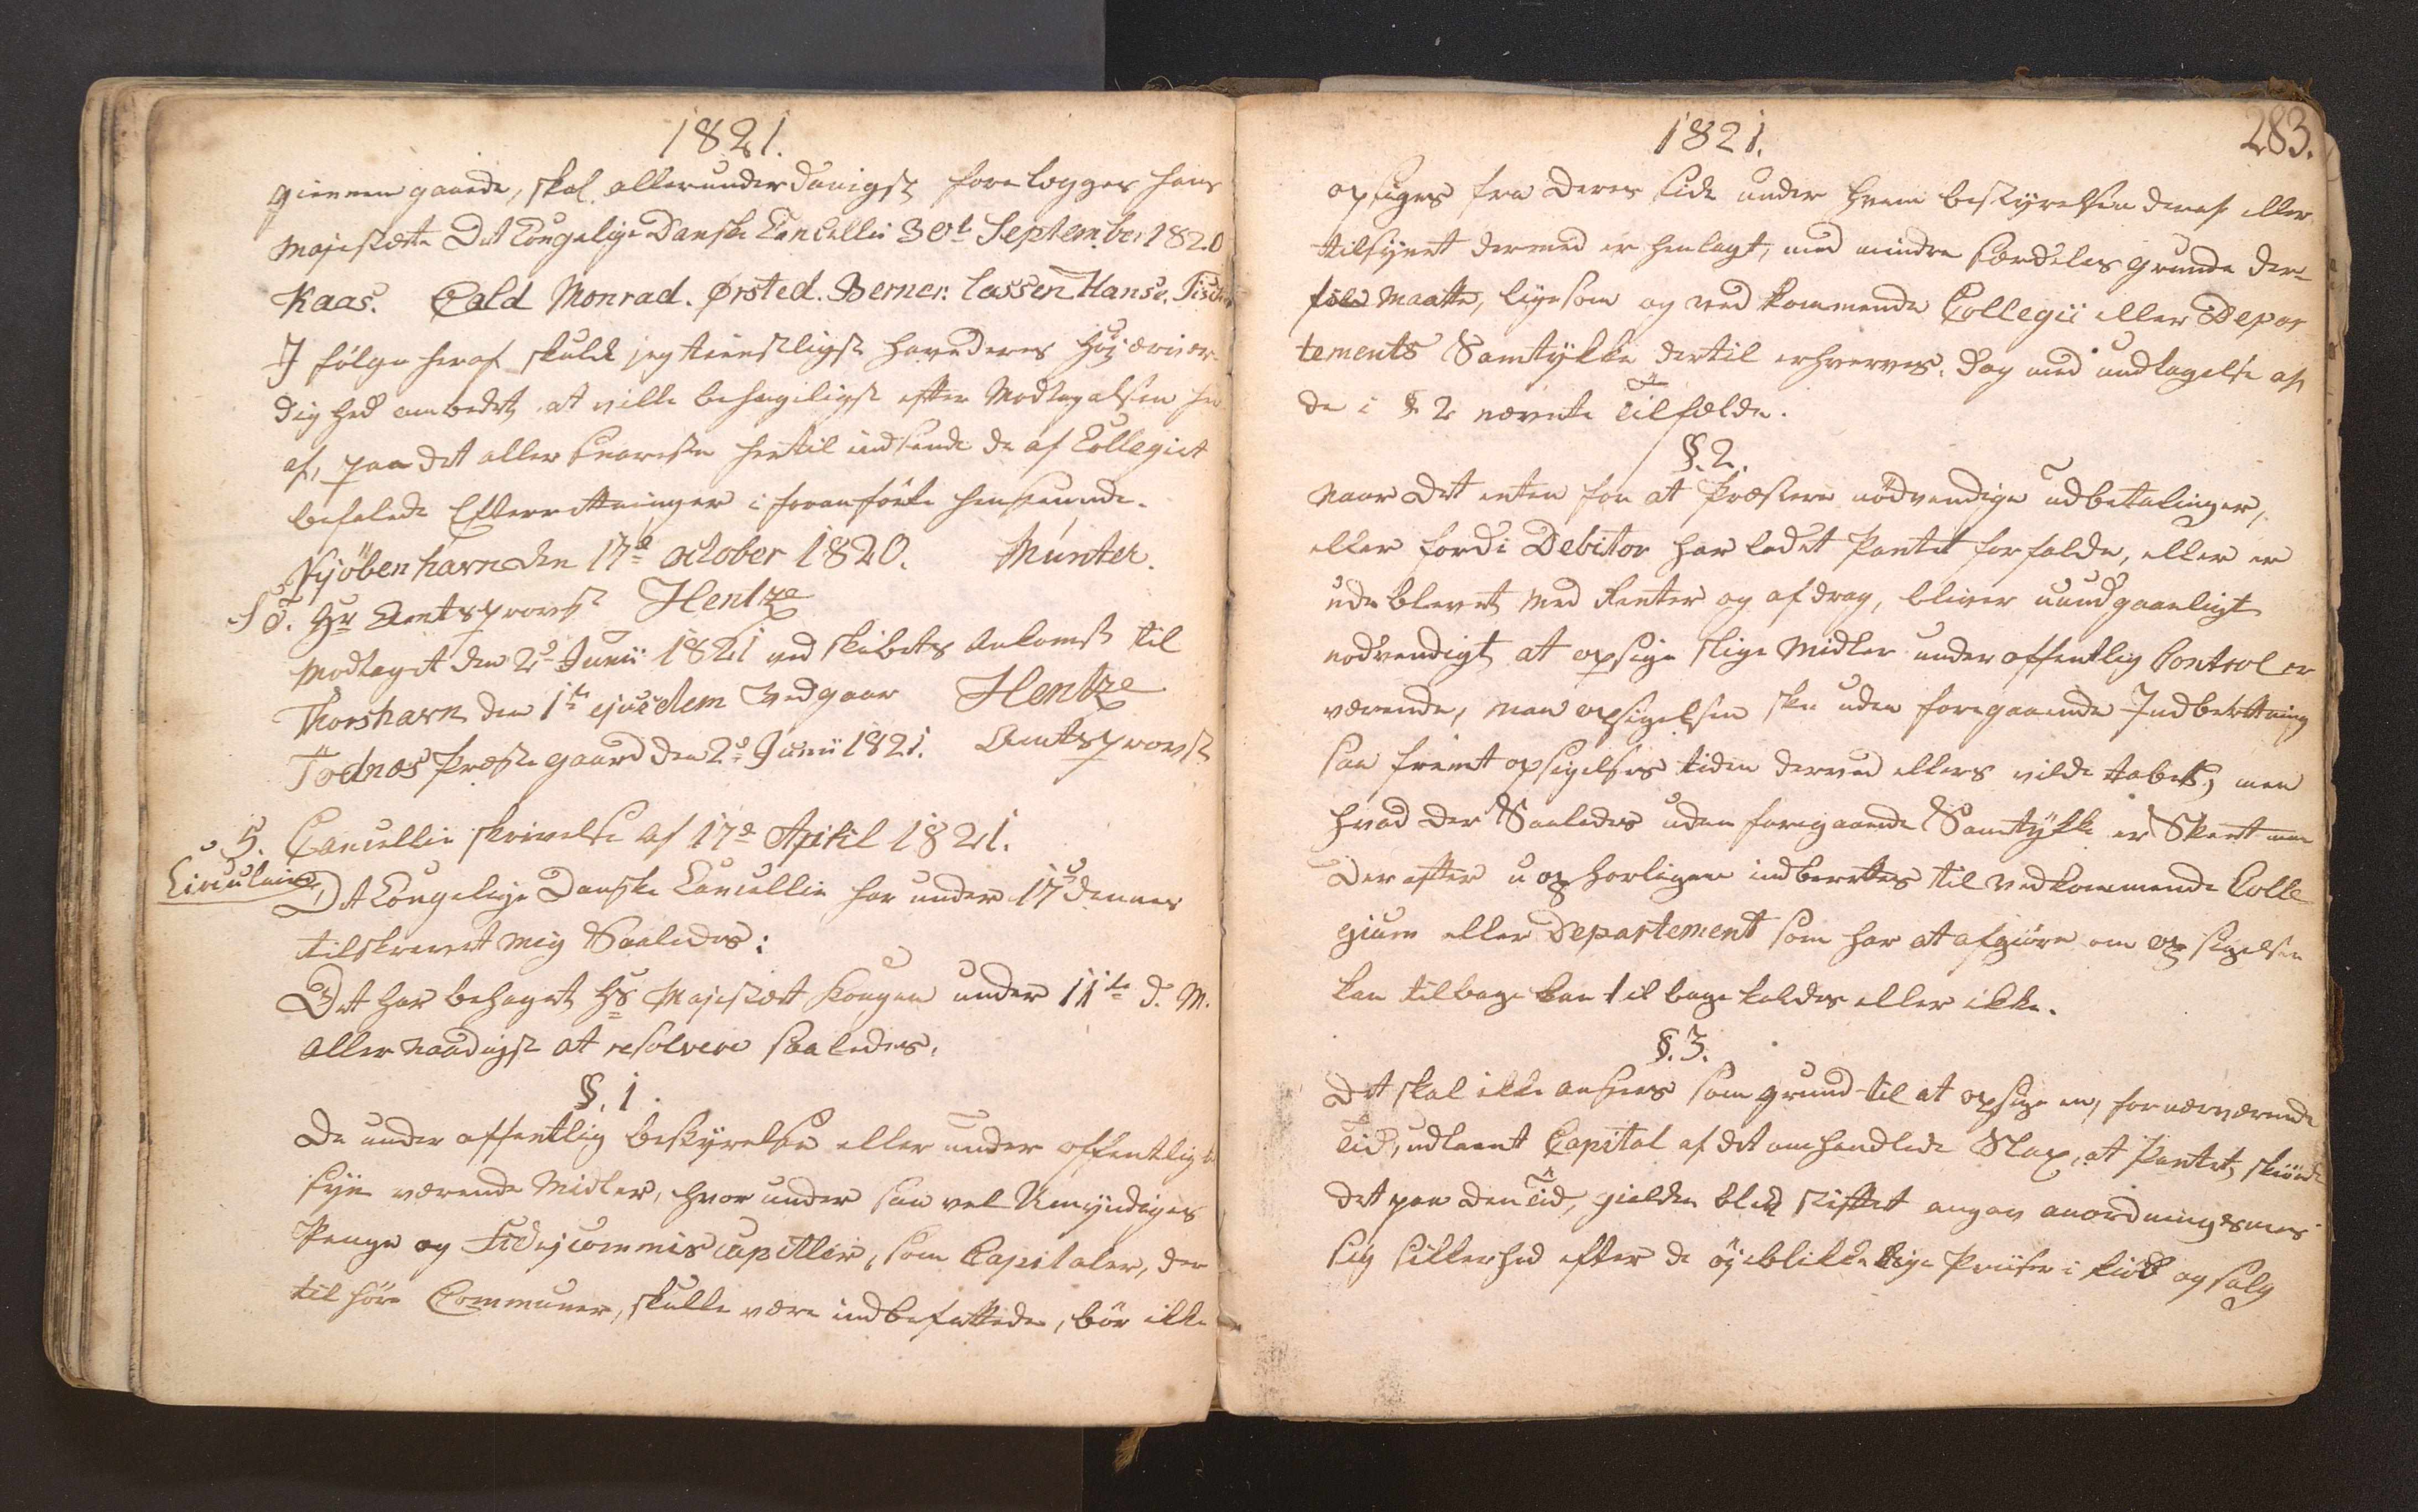 1821.
giennem gaaede, skal allerunderdanigst forelægges hans
Majestæt. Det Kongelige Danske Cancellie 30t September 1820
Kaas. Cold Monrad. Ørsted. Berner. Lassen Hansen.
I følge heraf skulde jeg tienstligst have deres Høiærvær-
dighed ombedet, at ville behageligst efter Modtagelsen her
af, paa det aller snareste hertil indsende de af Collegiet
befalede Efterretninger i foranførte henseende.
Kjöbenhavn den 17de october 1820. Münter.
S. T. Hr. Amtsprovst Hentze
Modtaget den 2d Junii 1821 ved skibets Ankomst til
Thorshavn den 1te ejusdem Vedgaar Hentze
Todnæs Præstegaard den 2d Junii 1821. Amtsprovst
5. Cancellie skrivelse af 17de April 1821.
Circulaire
Det Kongelige Danske Cancellie har under 17d dennes
tilskrevet mig Saaledes:
Det har behaget Hs Majestæt Kongen under 11te d. M.
allernaadigst at resolvere saaledes.
§. 1.
De under offentlig bestyrelse eller under offentlig
syn værende Midler, hvorunder saa vel Umyndiges
Penge og Fideicommiscapitler, som Capitaler, der
tilhøre Communer, skulle være indbefattede, bör ikke
1821. 283.
opsiges fra deres side under hvem bestyrelsen deraf eller
tilsynet dermed er henlagt, med mindre særdeles grunde der-
maatte, ligesom og vedkommende Collegii eller Depar
tements Samtykke dertil erhverves. dog med undtagelse af
de i § 2 nævnte Tilfælde.
§. 2.
Naar det enten for at Præstere nödvendige udbetalinger,
eller fordi Debitor har ladet Pantet forfalde, eller er
udeblevet med Renter og afdrag, bliver uundgaaeligt
nödvendigt, at opsige slige Midler under offentlig Control er
værende, maa opsigelsen skee uden foregaaende Indberetning
saa fremt opsigelses tiden derved ellers vilde tabes, men
hvad der Saaledes uden foregaaende Samtykke er Skeet maa
derefter uopholdligen indberettes til vedkommende Colle
gium eller Departement som har at afgiöre om opsigelsen
kan tilbage kan tilbage kaldes eller ikke.
§. 3.
Det skal ikke ansees som grund til at opsige en, for nærværende
Tid, udlaant Capital af det omhandlede Slag, at Pantet, skiöndt
det paa den Tid, gielden blev stiftet angav anordningsmæs
sig sikkerhed efter de öjeblikkelige Priser i kiöb og salg